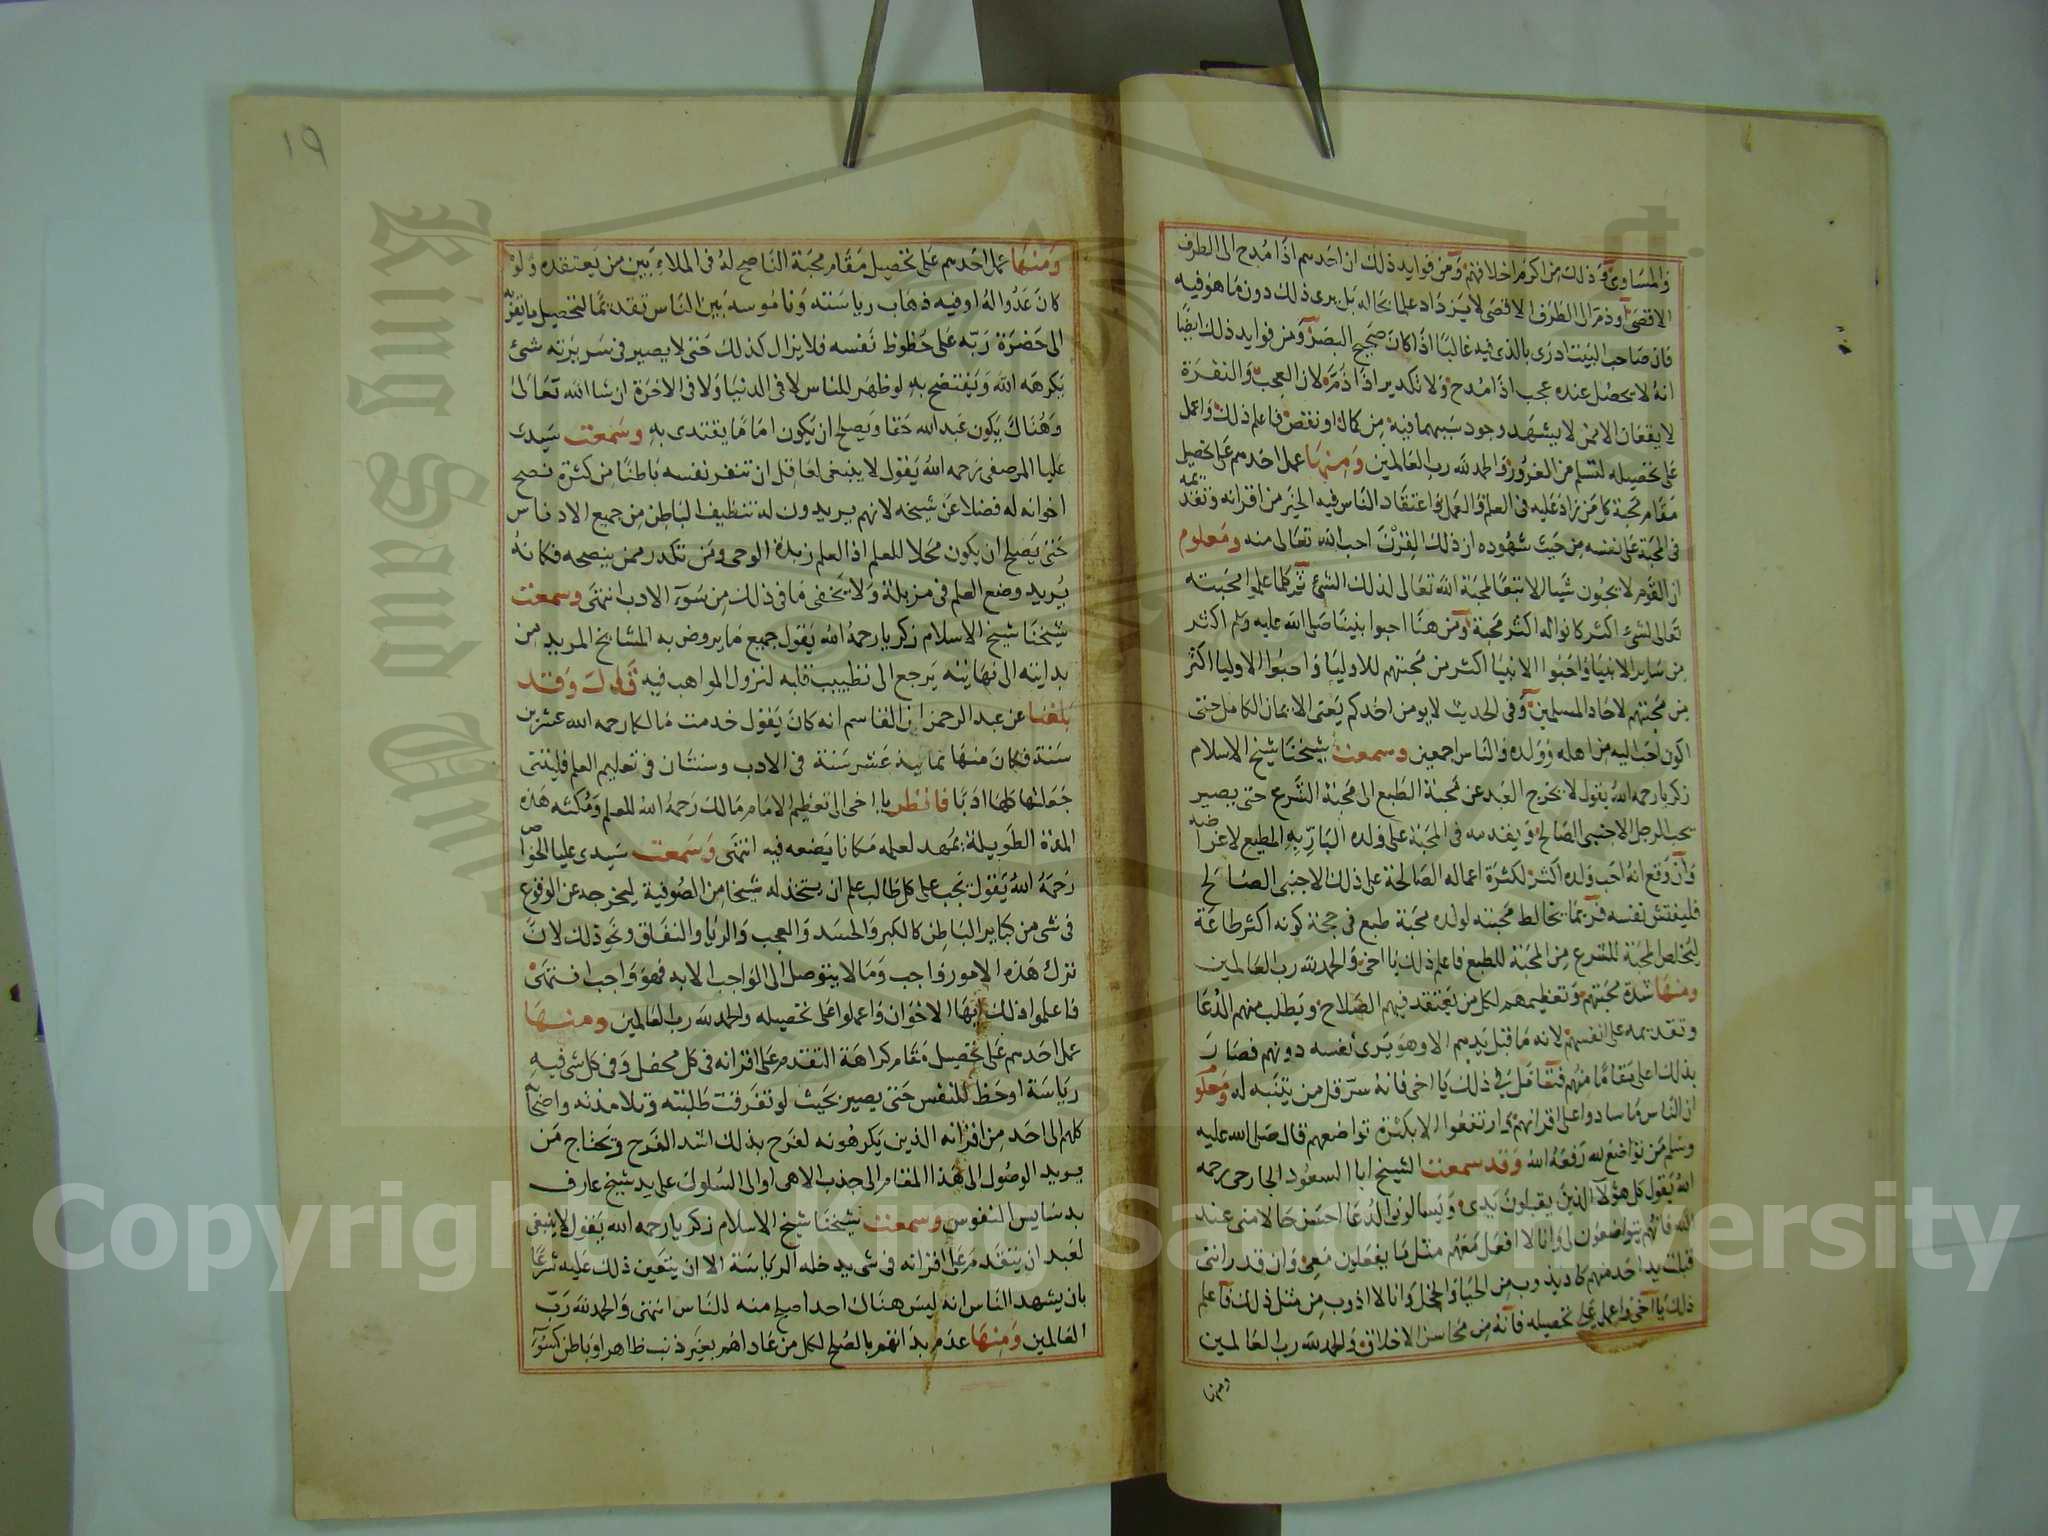 والمساوى وذلك من اكرم اخلاقهم ومن فوايد ذلك ان احدهم اذا مدح الى الطرف
الاقصى او ذم الى الطرف الاقصى لا يزداد علما بحاله بل يرى ذلك دون ما هو فيه
فان صاحب البيت ادرى بالذى فيه غالبا اذا كان صحيح البصر ومن فوايد ذلك ايضا
انه لا يحصل عنده عجب اذا مدح ولا تكدير اذا ذم لان العجب والنفرة
لا يقعان الا ممن لا يشهد وجود سببهما فيه من كمال او نقص فاعلم ذلك واعمل
على تحصيله لتسلم من الغرور والحمد لله رب العالمين ومنها عمل احدهم على تحصيل
مقام محبة كل من زاد عليه فى العلم والعمل واعتقاد الناس فيه الخير من اقرانه وتقديمه
فى المحبة على نفسه من حيث شهوده ان ذلك القرن احب الله تعالى منه ومعلوم
ان القوم لا يحبون شيا الا تبعا لمحبة الله تعالى لذلك الشئ ثم كلما علموا محبته
تعالى لشئ اكثر كانوا له اكثر محبة ومن هنا احبوا نبينا صلى الله عليه وسلم اكثر
من ساير الانبيا واحبوا الانبيا اكثر من محبتهم للاوليا واحبوا الاوليا اكثر
من محبتهم لاحاد المسلمين وفى الحديث لا يومن احدكم يعنى الايمان الكامل حتى
اكون احب اليه من اهله وولده والناس اجمعين وسمعت شيخنا شيخ الاسلام
زكريا رحمه الله يقول لا يخرج العبد عن محبة الطبع الى محبة الشرع حتى يصير
يحب الرجل الاجنبى الصالح ويقدمه فى المحبة على ولده البار به المطيع لاغراضه
وان وقع انه احب ولده اكثر لكثرة اعماله الصالحة على ذلك الاجنبى الصالح
فليفتش نفسه فربما يخالط محبته لولده محبة طبع فى حجة كونه اكثر طاعة
ليخلص المحبة للشرع من المحبة للطبع فاعلم ذلك يا اخى والحمد لله رب العالمين
ومنها شدة محبتهم وتعظيمهم لكل من يعتقد فيهم الصلاح ويطلب منهم الدعا
وتقديمه على انفسهم لانه ما قبل يدهم الا وهو يرى نفسه دونهم فصار
بذلك اعلى مقاما منهم فتامل فى ذلك يا اخى فانه سر قل من يتنبه له ومعلوم
ان الناس ما سادوا على اقرانهم وارتفعوا الا بكثرة تواضعهم قال صلى الله عليه
وسلم من تواضع لله رفعه الله وقد سمعت الشيخ ابا السعود الجارحى رحمه
الله يقول كل هؤلآ الذين يقبلون يدى ويسالونى الدعا احسن حالا منى عند
الله فانهم يتواضعون لى وانا لا افعل معهم مثل ما يفعلون معى وان قدر اننى
قبلت يد احد منهم كاد يذوب من الحيا والخجل وانا لا اذوب من مثل ذلك فاعلم
ذلك يا اخى واعمل على تحصيله فانه من محاسن الاخلاق والحمد لله رب العالمين
ومنها
١٩
ومنها عمل احدهم على تحصيل مقام محبة الناصح له فى الملاء بين من يعتقده ولو
كان عدوا له او فيه ذهاب رياسته وناموسه بين الناس تقديما لتحصيل ما يقربه
الى حضرة ربه على حظوظ نفسه فلا يزال كذلك حتى لا يصير فى سريرته شئ
يكرهه الله ويفتضح به لو ظهر للناس لا فى الدنيا ولا فى الاخرة ان شا الله تعالى
وهناك يكون عبد الله حقا ويصلح ان يكون اماما يقتدى به وسمعت سيدى
عليا المرصفى رحمه الله يقول لا ينبغى لعاقل ان تنفر نفسه باطنا من كثرة نصح
اخوانه له فضلا عن شيخه لانهم يريدون له تنظيف الباطن من جميع الادناس
حتى يصلح ان يكون محلا للعلم اذ العلم زبدة الوحى ومن تكدر ممن ينصحه فكانه
يريد وضع العلم فى مزبلة ولا يخفى ما فى ذلك من سوء الادب انتهى وسمعت
شيخنا شيخ الاسلام زكريا رحمه الله يقول جميع ما يروض به المشايخ المريد من
بدايته الى نهايته يرجع الى تطييب قلبه لنزول المواهب فيه قال وقد
بلغنا عن عبد الرحمن ابن القاسم انه كان يقول خدمت مالكا رحمه الله عشرين
سنة فكان منها ثمانية عشر سنة فى الادب وسنتان فى تعليم العلم فليتنى
جعلتها كلها ادبا فانظر يا اخى الى تعظيم الامام مالك رحمه الله للعلم ومكثه هذه
المدة الطويلة يمهد لعلمه مكانا يضعه فيه انتهى وسمعت سيدى عليا الخواص
رحمه الله يقول يجب على كل طالب علم ان يتخذ له شيخا من الصوفية ليخرجه عن الوقوع
فى شى من كباير الباطن كالكبر والحسد والعجب والريا والنفاق ونحو ذلك لان
ترك هذه الامور واجب وما لا يتوصل الى الواجب الا به فهو واجب انتهى
فاعلموا ذلك ايها الاخوان واعملوا على تحصيله والحمد لله رب العالمين ومنها
عمل احدهم على تحصيل مقام كراهة التقدم على اقرانه فى كل محفل وفى كل شى فيه
رياسة او حظ للنفس حتى يصير بحيث لو تفرقت طلبته وتلامذته واصحابه
كلهم الى احد من اقرانه الذين يكرهونه لفرح بذلك اشد الفرح ويحتاج من
يريد الوصول الى هذا المقام الى جذب الاهى او الى السلوك على يد شيخ عارف
بدسايس النفوس وسمعت شيخنا شيخ الاسلام زكريا رحمه الله يقول لا ينبغى
لعبد ان يتقدم على اقرانه فى شى يدخله الرياسة الا ان يتعين ذلك عليه شرعا
بان يشهد الناس انه ليس هناك احد اصلح منه للناس انتهى والحمد لله رب
العالمين ومنها عدم بداتهم بالصلح لكل من عاداهم بغير ذنب ظاهر او باطن كسوء
Copyright © King Saud University
King Saud University